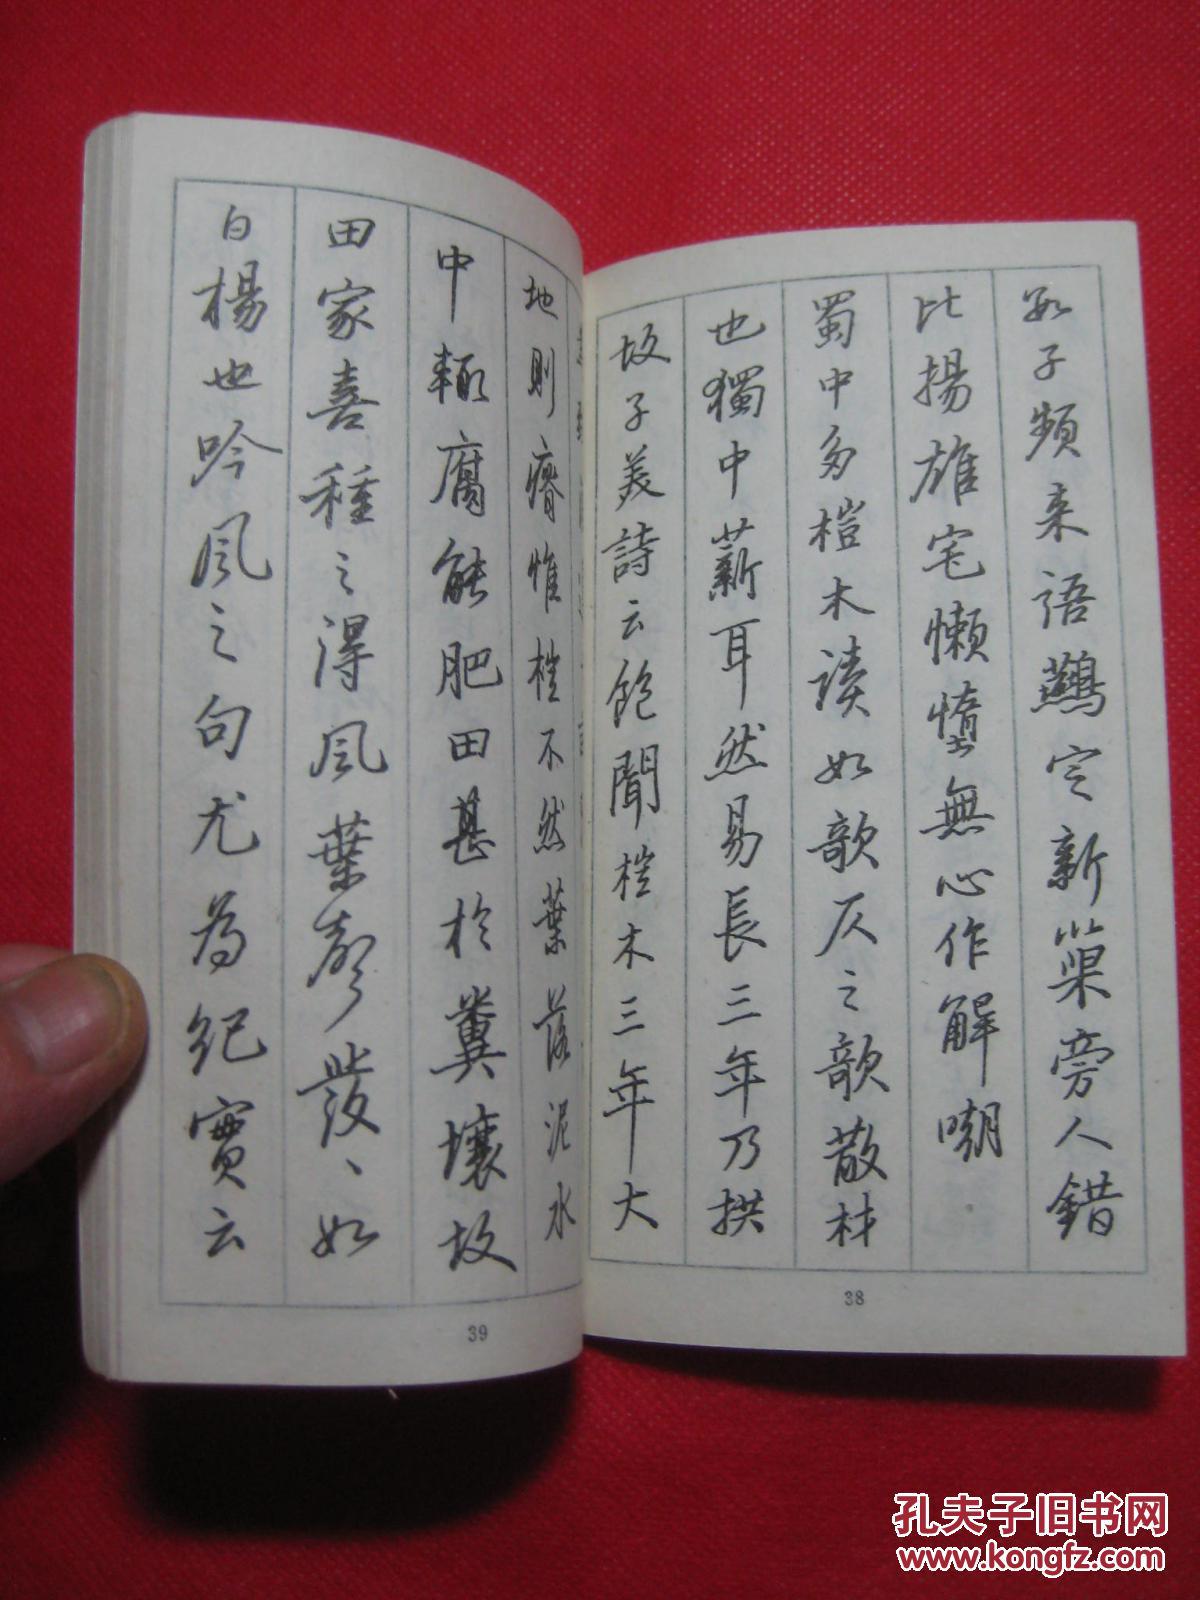 数子頻来語鷰定新巢旁人錯
比揚雄宅懶惰無心作解嘲
蜀中多榿木讀如欹仄之欹散材
也獨中薪耳然易長三年乃拱
故子美詩云飽聞榿木三年大
38
地則瘠惟榿不然葉落泥水
中輒腐能肥田甚於糞壤故
田家喜種之得風葉聲發、如
白楊也吟風之句尤為紀實云
39
孔夫子旧书网
www.kongfz.com